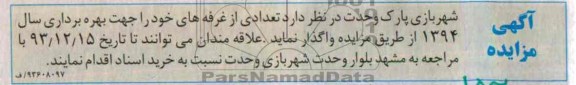 آگهی
مزایده
شهربازی پارک وحدت در نظر دارد تعدادی از غرفه های خود را جهت بهره برداری سال
۱۳۹۴ از طریق مزایده واگذار نماید. علاقه مندان می توانند تا تاریخ ۹۳٫۱۲٫۱۵ با
مراجعه به مشهد بلوار وحدت شهربازی وحدت نسبت به خرید اسناد اقدام نمایند.
۹۳۶۰۸۰۹۷/ف
ParsNamadData